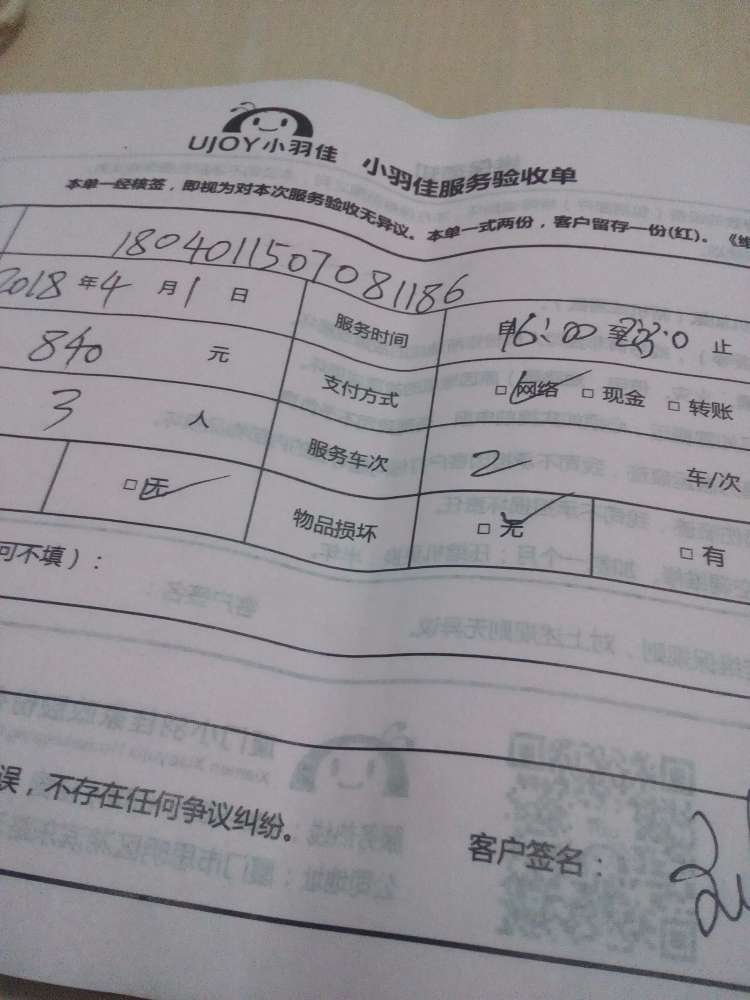 UJOY小羽佳 小羽佳服务验收单
本单一经核签，即视为对本次服务验收无异议。本单一式两份，客户留存一份(红)。《维
1804011507081186
2018年4月1日 服务时间 16:00至 止
840 元 支付方式 □网络 □现金 □转账
3 人 服务车次 2 车/次
□无 物品损坏 □无 □有
可不填）：
误，不存在任何争议纠纷。
客户签名：